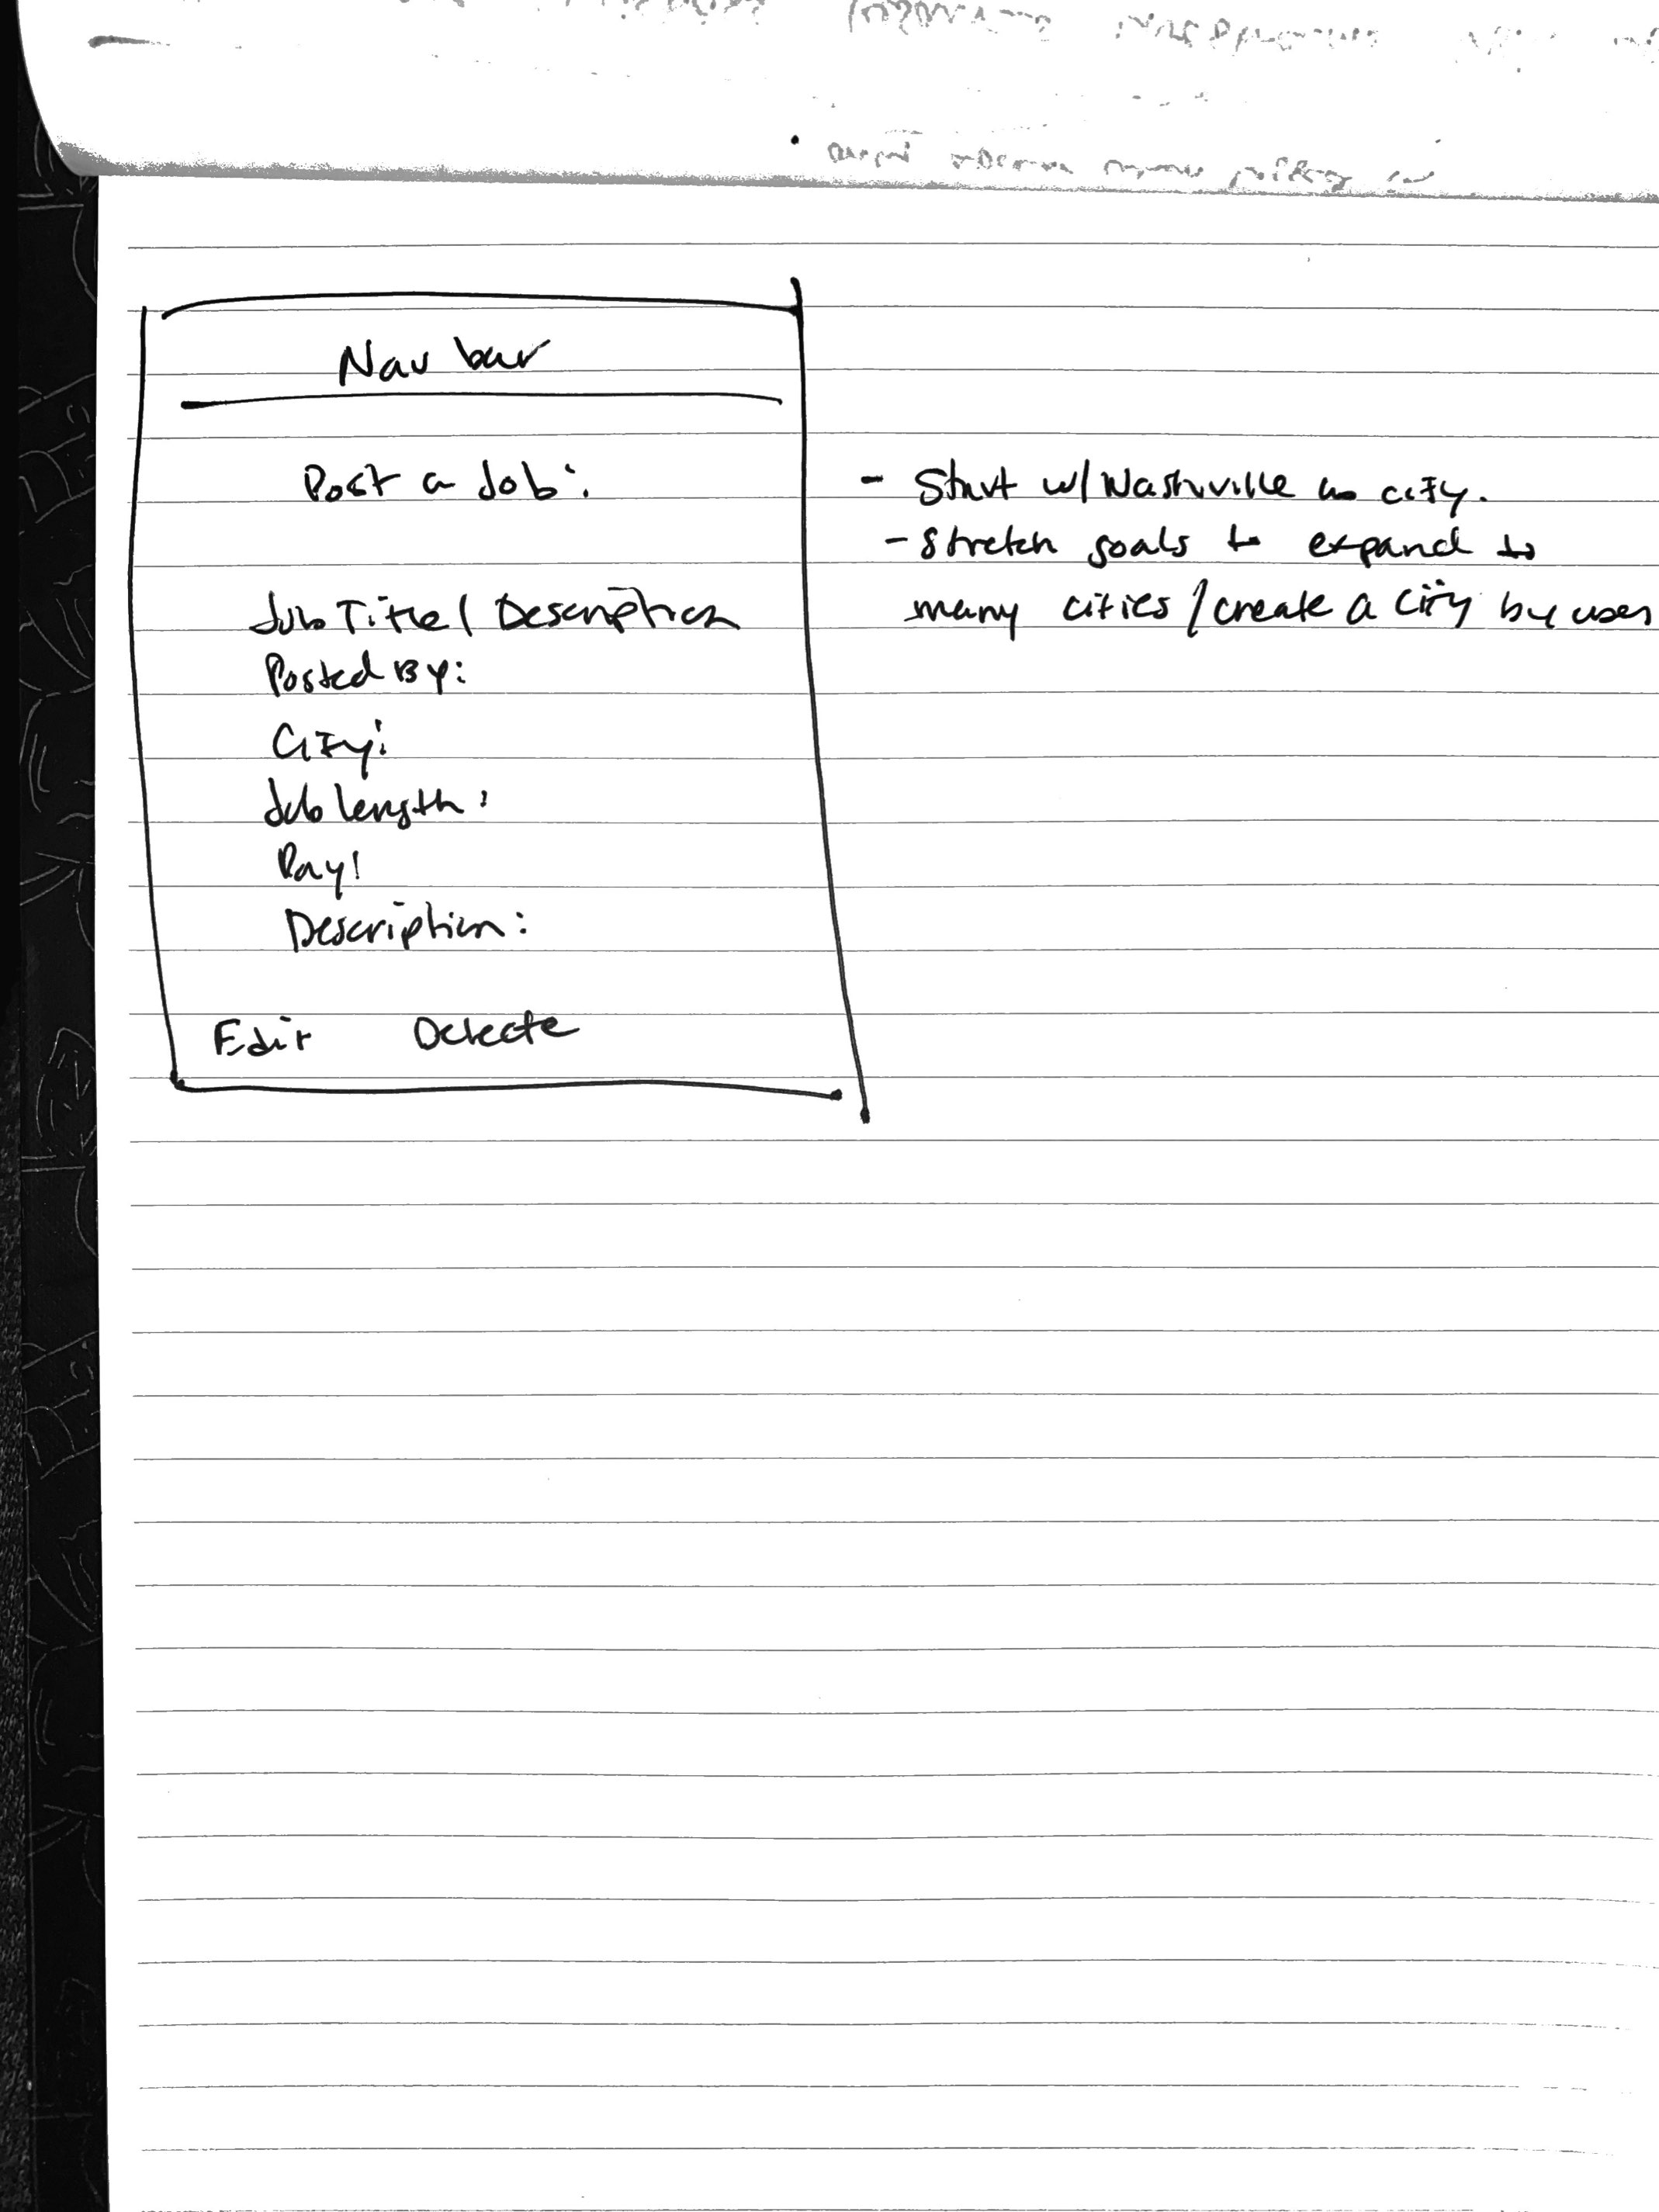 Nav bar
Post a Job:
Job Title / Description
Posted By:
City:
Job length:
Pay:
Description:
Edit Delete
- Start w/ Nashville as city.
- Stretch goals to expand to
many cities / create a city by user